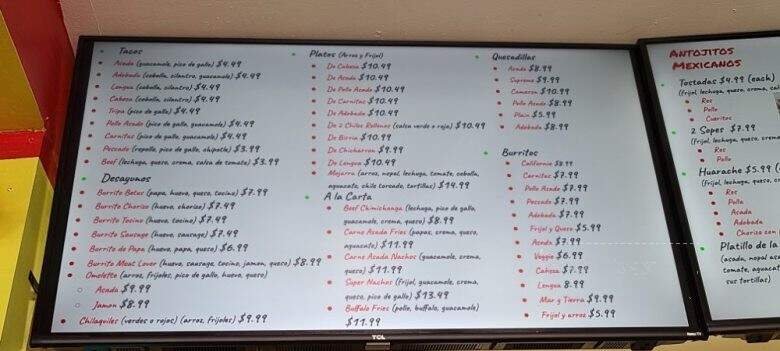 Tacos
Asada (guacamole, pico de gallo) $4.49
Adobada (cebolla, cilantro, guacamole) $4.49
Lengua (cebolla, cilantro) $4.49
Cabeza (cebolla, cilantro) $4.49
Tripa (pico de gallo) $4.49
Pollo Asado (pico de gallo, guacamole) $4.49
Carnitas (pico de gallo, guacamole) $4.49
Pescado (repollo, pico de gallo, chipotle) $3.99
Beef (lechuga, queso, crema, salsa de tomate) $3.99
Desayunos
Burrito Betos (papa, huevo, queso, tocino) $7.99
Burrito Chorizo (huevo, chorizo) $7.49
Burrito Tocino (huevo, tocino) $7.49
Burrito Sausage (huevo, sausage) $7.49
Burrito de Papa (huevo, papa, queso) $6.99
Burrito Meat Lover (huevo, sausage, tocino, jamon, queso) $8.99
Omelette (arroz, frijoles, pico de gallo, huevo, queso)
Asada $9.99
Jamon $8.99
Chilaquiles (verdes o rojos) (arroz, frijoles) $9.99
Platos (Arroz y Frijol)
De Cabeza $10.49
De Asada $10.49
De Pollo Asado $10.49
De Carnitas $10.49
De Adobada $10.49
De 2 Chiles Rellenos (salsa verde o roja) $10.49
De Birria $10.99
De Chicharron $9.99
De Lengua $10.49
Mojarra (arroz, nopal, lechuga, tomate, cebolla,
aguacate, chile toreado, tortillas) $14.99
A la Carta
Beef Chimichanga (lechuga, pico de gallo,
guacamole, crema, queso) $8.99
Carne Asada Fries (papas, crema, queso,
aguacate) $11.99
Carne Asada Nachos (guacamole, crema,
queso) $11.99
Super Nachos (frijol, guacamole, crema,
queso, pico de gallo) $13.49
Buffalo Fries (pollo, buffalo, guacamole)
$11.99
Quesadillas
Asada $8.99
Suprema $9.99
Camaron $10.99
Pollo Asado $8.99
Plain $5.99
Adobada $8.99
Burritos
California $8.99
Carnitas $7.99
Pollo Asado $7.99
Pescado $7.99
Adobada $7.99
Frijol y Queso $5.99
Asada $7.99
Veggie $6.99
Cabeza $7.99
Lengua 8.99
Mar y Tierra $9.99
Frijol y arroz $5.99
TCL
Antojitos
Mexicanos
Tostadas $4.99 (each)
(frijol, lechuga, queso, crema,
Res
Pollo
Cueritos
2 Sopes $7.99
(frijol, lechuga, queso,
Res
Pollo
Huarache $5.99
(frijol, lechuga, queso,
Res
Pollo
Asada
Adobada
Chorizo con
Platillo de la
(asada, nopal
tomate,
sus tortillas)